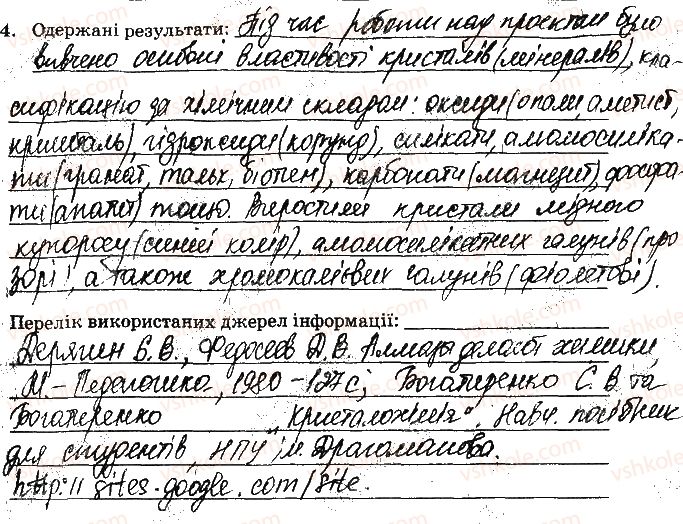 4. Одержані результати: Під час роботи над проектом було
вивчено особливі властивості кристалів (мінералів), кла-
сифікацію за хімічним складом: оксиди (опали, аметист,
кришталь), гідроксиди (корунд), силікати, алюмосиліка-
ти (гранат, тальк, біотит), карбонати (магнезит), фосфа-
ти (апатит) тощо. Виростили кристали мідного
купоросу (синій колір), алюмосилікатних галунів (про
зорі), а також хромокалієвих галунів (фіолетові).
Перелік використаних джерел інформації:
Дерягин Б.В., Федосеев Д.В. Алмазы делают химики
М. - Педагогика, 1980 - 127 с; Богатиренко С. В. та
Богатиренко „Кристалохімія". Навч. посібник
для студентів, НПУ ім. Драгоманова.
http: // sites. google. com / site.